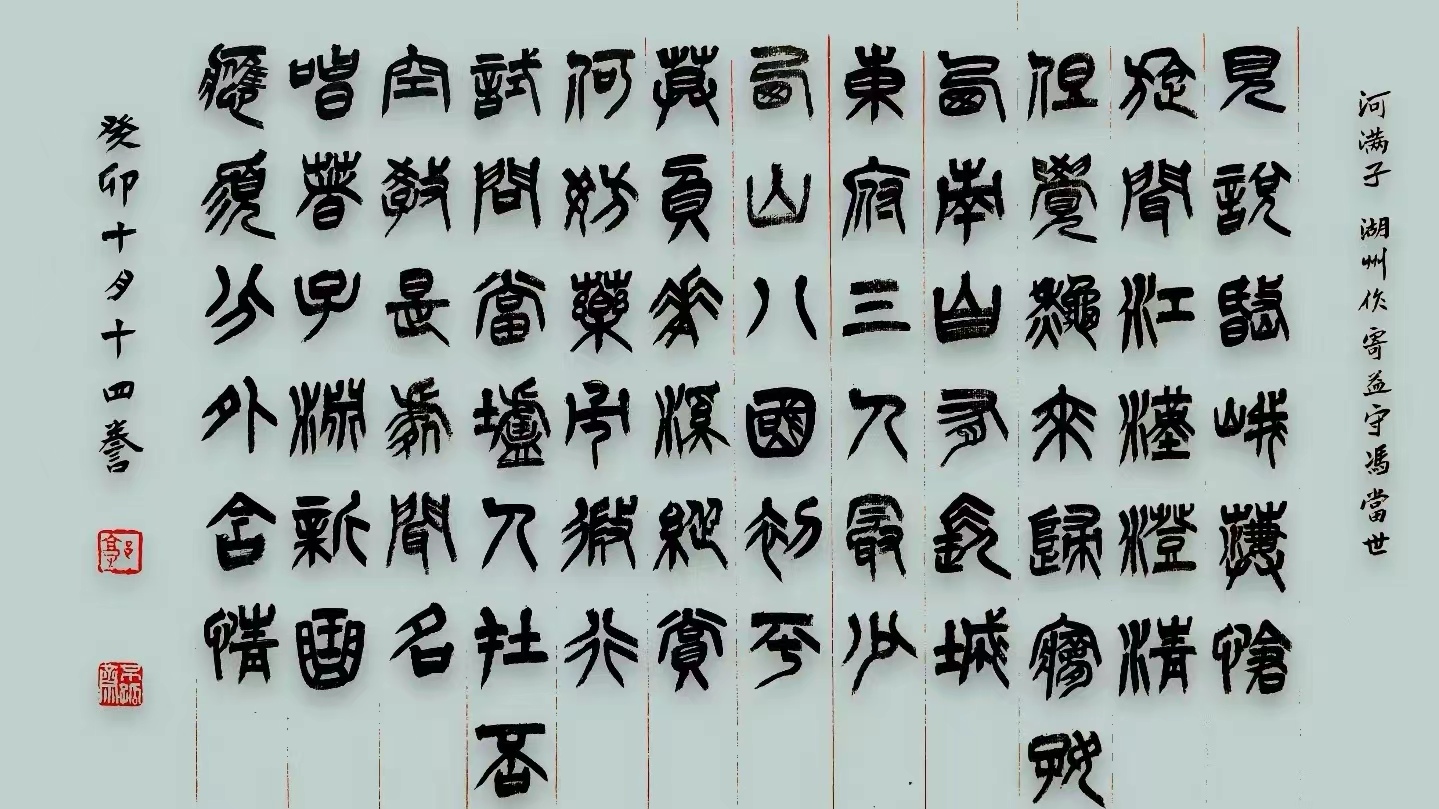 河满子 湖州作寄益守馮當世
見說岷峨淒愴
旋聞江漢澄清
但覺龝來歸夢好
西南自有長城
東府三人最少
西山八國初平
莫負花溪縱賞
何妨藥市微行
試問當壚人在否
空教是處聞名
唱著子淵新曲
應須分外含情
癸卯十月十四誊